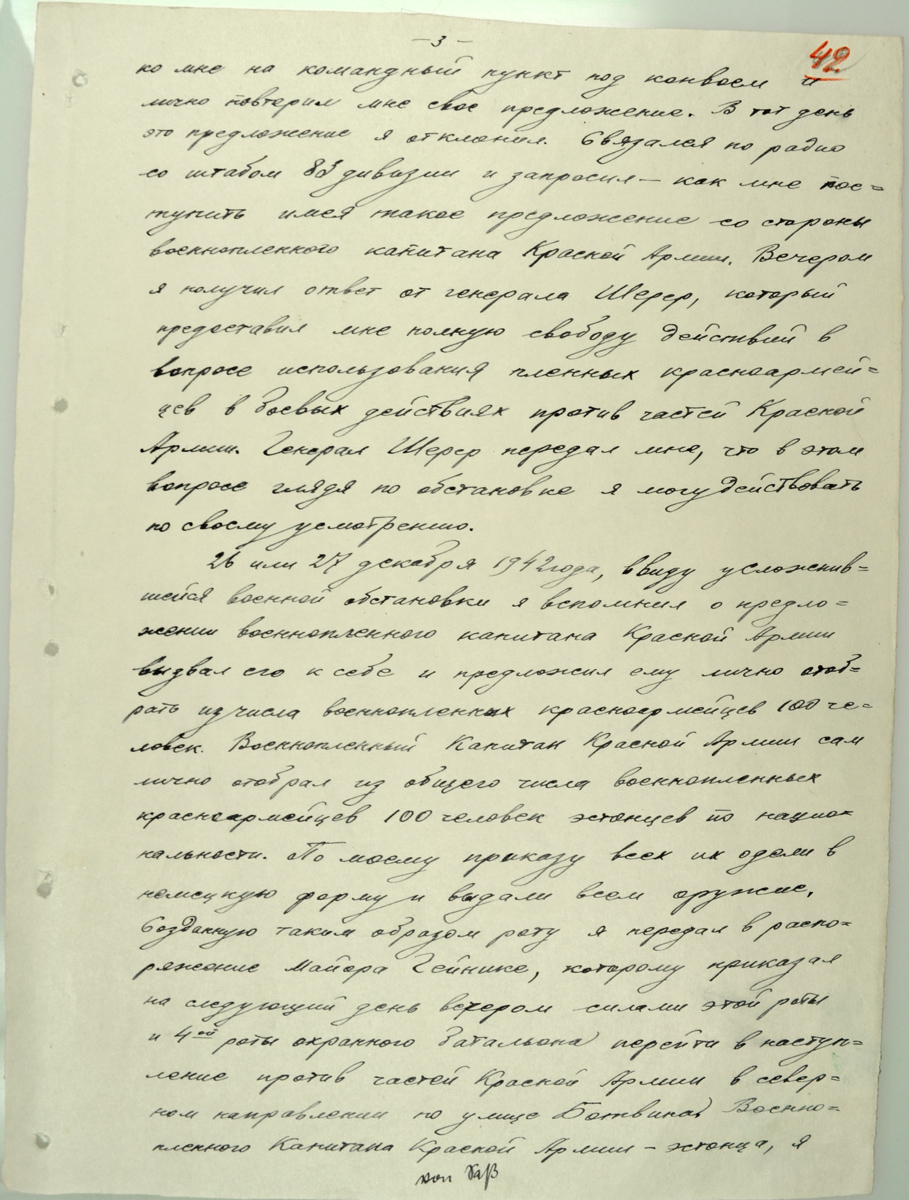 — 3 —
42
ко мне на командный пункт под конвоем и
лично повторил мне свое предложение. В тот день
это предложение я отклонил. Связался по радио
со штабом 83 дивизии и запросил — как мне пос=
тупить имея такое предложение со стороны
военнопленного капитана Красной Армии. Вечером
я получил ответ от генерала Шерер, который
предоставил мне полную свободу действий в
вопросе использования пленных красноармей=
цев в боевых действиях против частей Красной
Армии. Генерал Шерер передал мне, что в этом
вопросе глядя по обстановке я могу действовать
по своему усмотрению.
26 или 27 декабря 1942 года, ввиду усложнив=
шейся военной обстановки я вспомнил о предло=
жении военнопленного капитана Красной Армии
вызвал его к себе и предложил ему лично отоб=
рать из числа военнопленных красноармейцев 100 че=
ловек. Военнопленный Капитан Красной Армии сам
лично отобрал из общего числа военнопленных
красноармейцев 100 человек эстонцев по нацио=
нальности. По моему приказу всех их одели в
немецкую форму и выдали всем оружие.
Созданную таким образом роту я передал в распо=
ряжение Майора Гейнике, которому приказал
на следующий день вечером силами этой роты
и 4ой роты охранного батальона перейти в наступ=
ление против частей Красной Армии в север=
ном направлении по улице Ботвина. Военно=
пленного Капитана Красной Армии — эстонца, я
von Saß